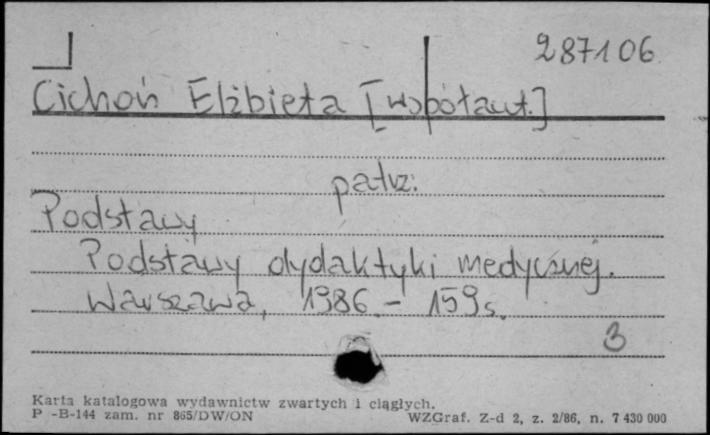 287106
Cichoń Elżbieta [współaut.]
patrz:
Podstawy
Podstawy dydaktyki medycznej.
Warszawa, 1986.- 159 s.
3
Karta katalogowa wydawnictw zwartych i ciągłych.
P -B-144 zam. nr 865/DW/ON WZGraf. Z-d 2, z. 2/86, n. 7 430 000